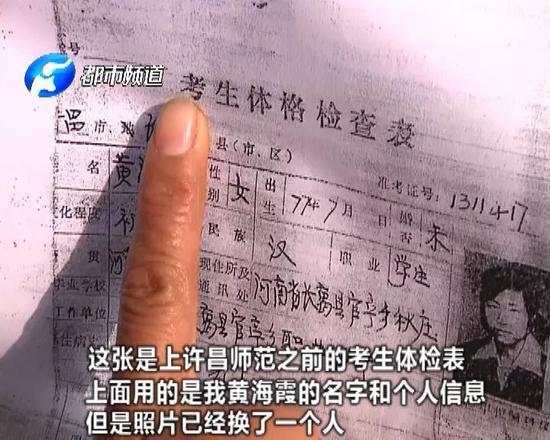 都市频道
考生体格检查表
市、 县(市、区)
准考证号: 1311417
名 黄 性别 女 出生 77年7月 日 婚否 未
文化程度 初 民族 汉 职业 学生
贯 河 现住所及通讯处 河南省长葛县官亭乡秋庄
毕业学校
工作单位 葛县官亭乡
这张是上许昌师范之前的考生体检表
上面用的是我黄海霞的名字和个人信息
但是照片已经换了一个人